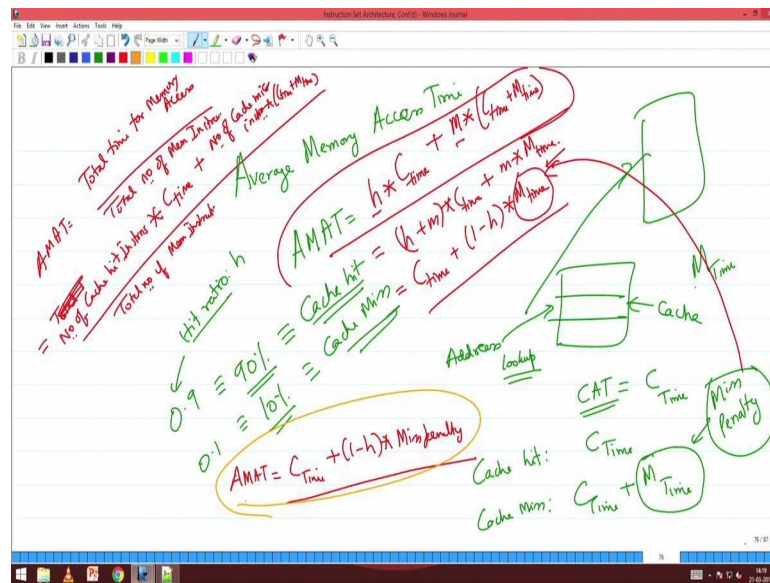 Instruction Set Architecture, Cont'd) - Windows Journal
File Edit View Insert Actions Tools Help
Page Width
B I
Total time for Memory Access
AMAT=
Total no of Mem Instrns
= No of Cache hit Instrns * Ctime + No of Cache miss instrn * (Ctime+Mtime)
Total no of Mem Instrut
Average Memory Access Time
AMAT= h* Ctime + m* (Ctime+Mtime)
= (h+m)*Ctime + m*Mtime.
= Ctime + (1-h)*Mtime
Hit ratio: h
0.9 ≡ 90% ≡ Cache hit
0.1 ≡ 10% ≡ Cache Miss
AMAT= CTime +(1-h)* Miss penalty
MTime
Cache
Address
lookup
CAT= CTime
Miss
Penalty
Cache hit: CTime
Cache Miss: CTime + MTime
76 / 87
76
14:19